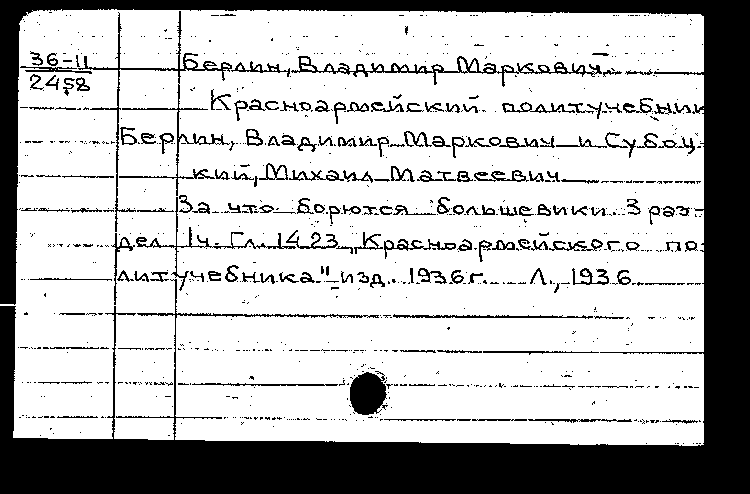 36-11
2458
Берлин, Владимир Маркович.
Красноармейский политучебник
Берлин, Владимир Маркович и Субоц-
кий, Михаил Матвеевич
За что борются большевики. 3 раз-
дел 1ч. Гл. 14 23 „Красноармейского по-
литучебника" изд. 1936 г. Л., 1936